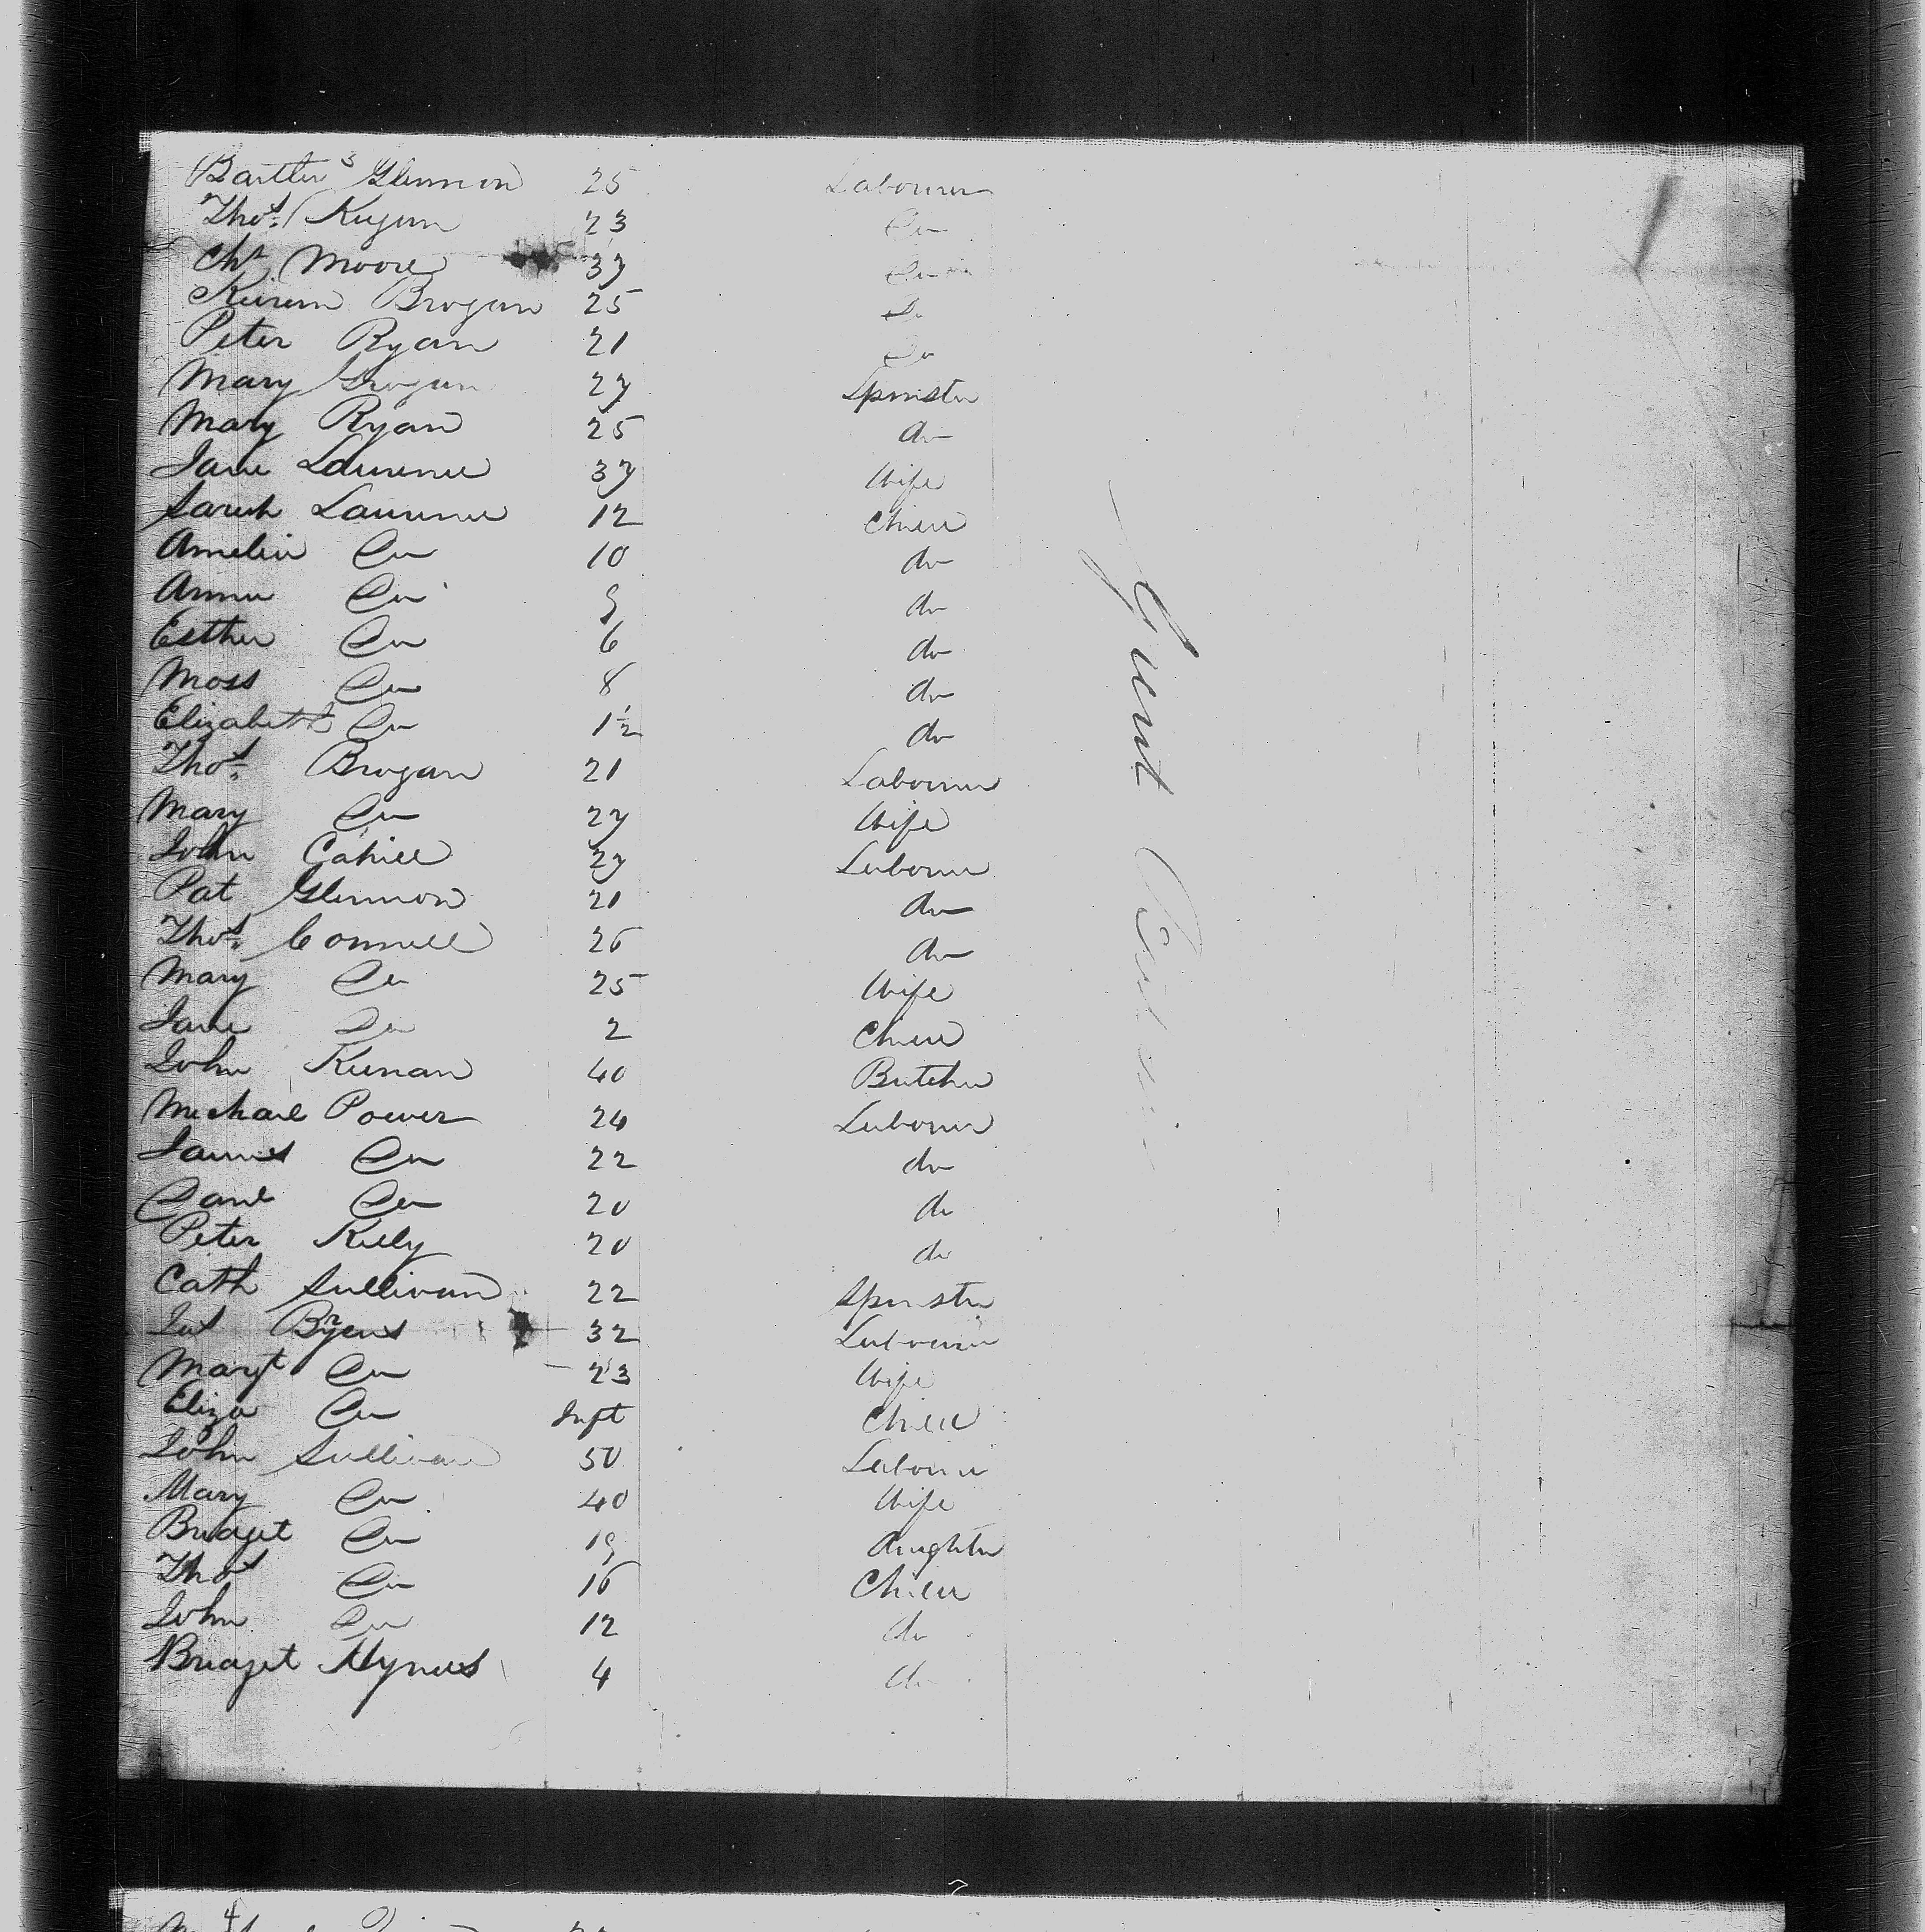 Bartlw s Glennon 25 Labourer
Thos. Kegan 23 Do
Chs Moore 37 Do
Kieran Brogan 25 Do
Peter Ryan 21 Do
Mary Grogan 27 Spinster
Mary Ryan 25 do
Jane Laurence 37 Wife
Sarah Laurence 12 Child
Amelia Do 10 do
Anna Do 9 do
Esther Do 6 do
Moss Do 8 do
Elizabeth Do 1½ do
Thos. Brogan 21 Labourer
Mary Do 27 Wife
John Cahill 27 Labourer
Pat Glennon 21 do
Thos. Connell 26 do
Mary Do 25 Wife
Jane Do 2 Child
John Keenan 40 Butcher
Michael Power 24 Labourer
James Do 22 do
Danl Do 20 do
Peter Kelly 20 do
Cath Sullivan 22 Spinster
Jas Byrns 32 Labourer
Margt Do 23 Wife
Eliza Do Inft Child
John Sullivan 50 Labourer
Mary Do 40 Wife
Bridget Do 19 Daughter
Thos Do 16 Child
John Do 12 do
Bridget Hynes 4 do
Great Britain